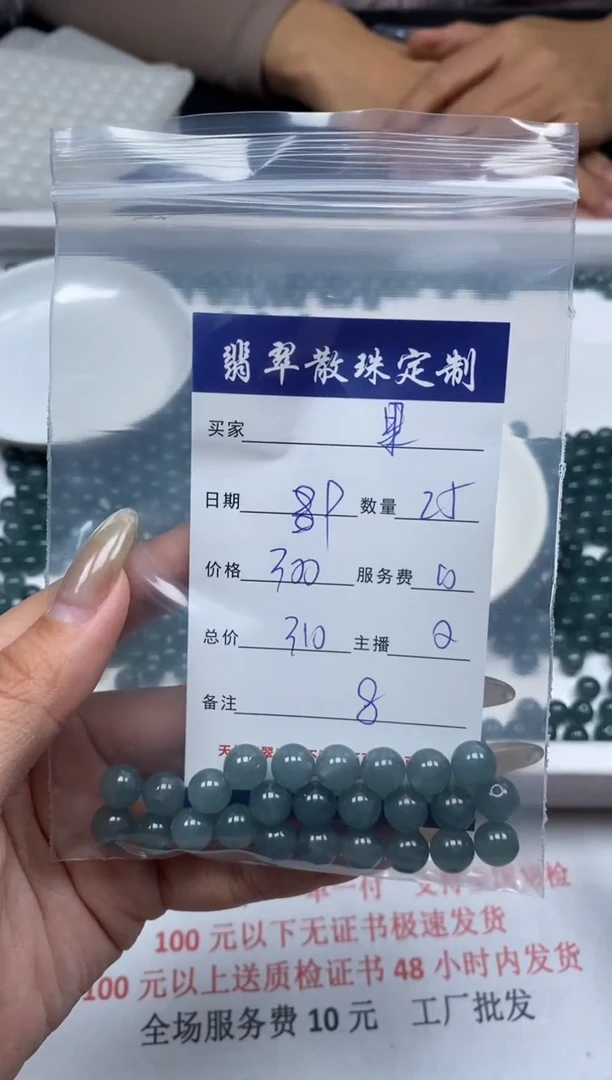 翡翠散珠定制
买家 果
日期 8P 数量 25
价格 300 服务费 10
总价 310 主播 Q
备注 8
100 元以下无证书极速发货
100 元以上送质检证书 48 小时内发货
全场服务费 10 元 工厂批发